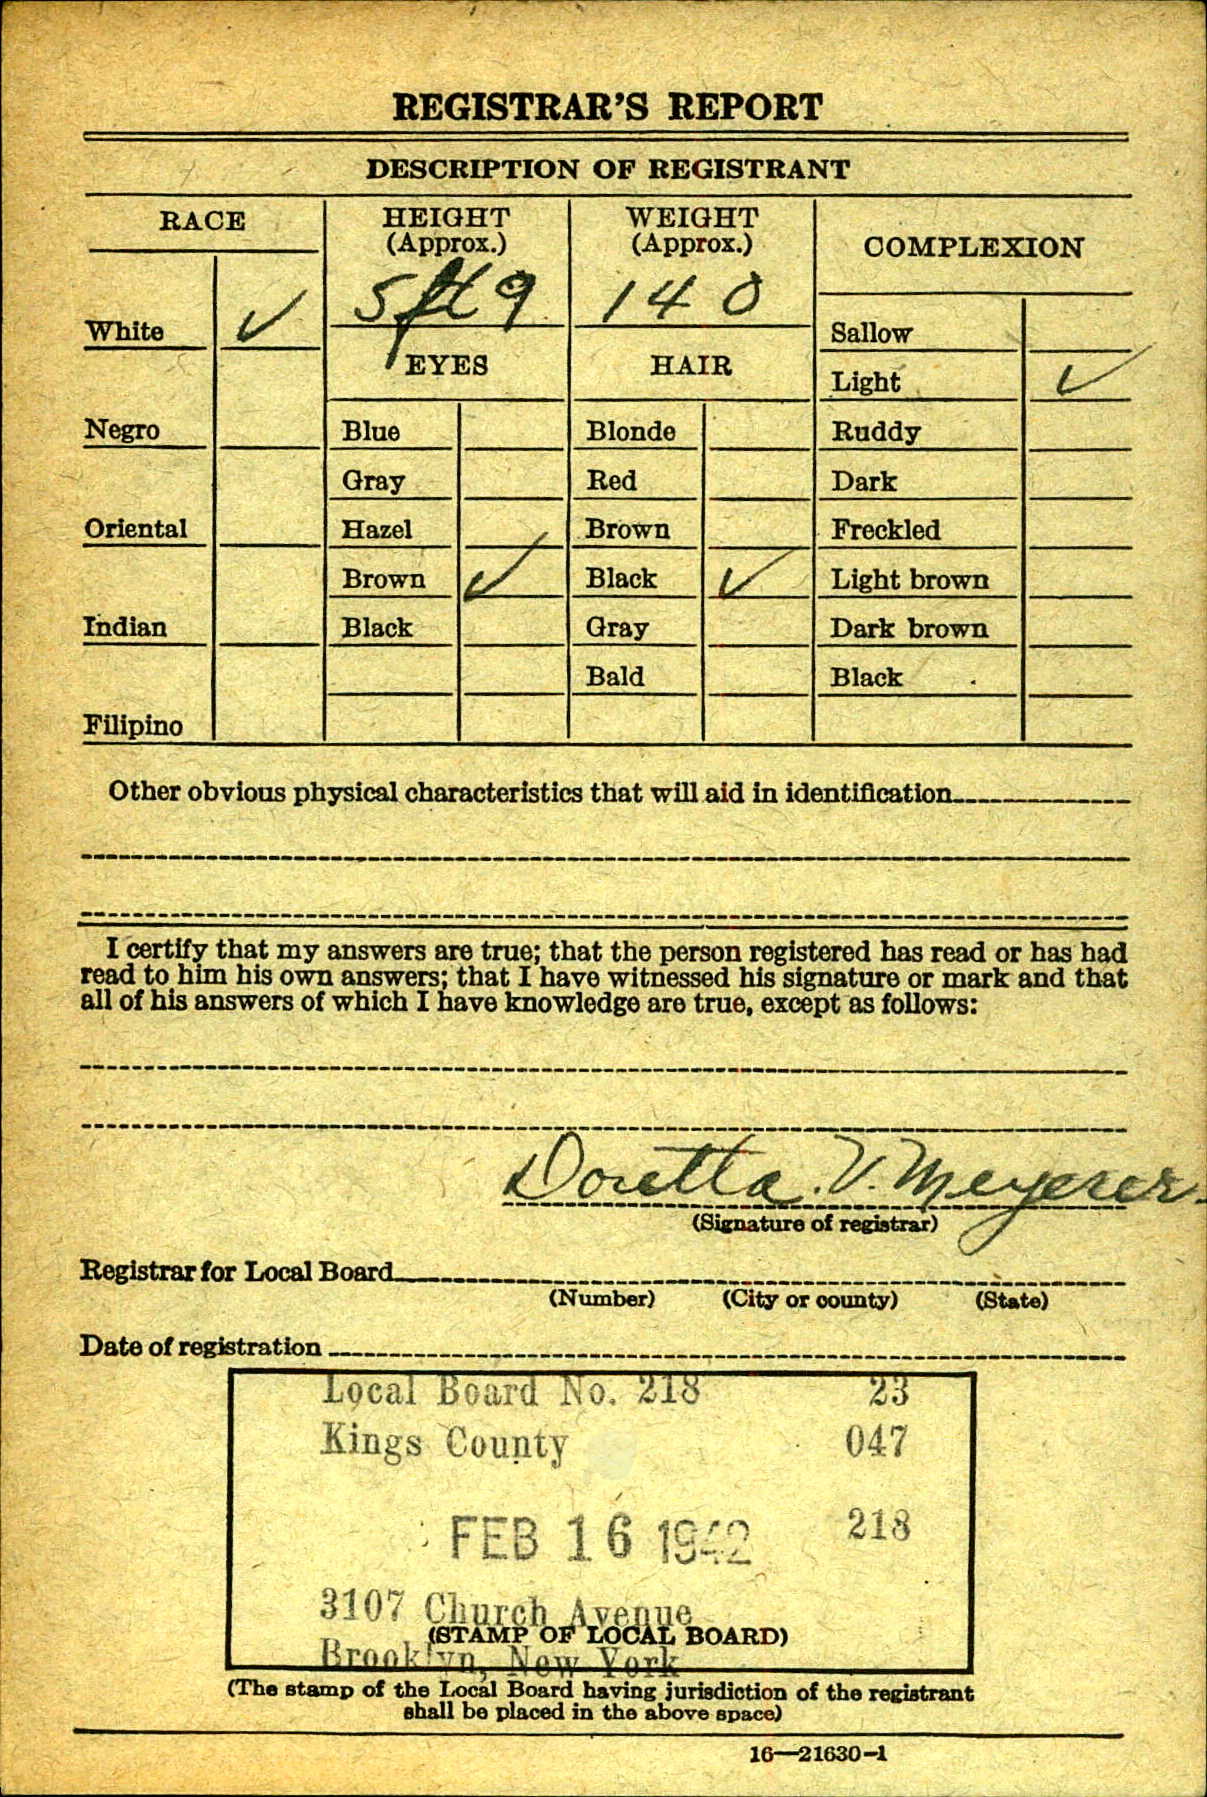 REGISTRAR'S REPORT
DESCRIPTION OF REGISTRANT
RACE
HEIGHT
(Approx.)
WEIGHT
(Approx.)
COMPLEXION
5 ft 9
140
White ✓
EYES
HAIR
Sallow
Light ✓
Negro
Blue
Blonde
Ruddy
Gray
Red
Dark
Oriental
Hazel
Brown
Freckled
Brown ✓
Black ✓
Light brown
Indian
Black
Gray
Dark brown
Bald
Black
Filipino
Other obvious physical characteristics that will aid in identification
I certify that my answers are true; that the person registered has read or has had
read to him his own answers; that I have witnessed his signature or mark and that
all of his answers of which I have knowledge are true, except as follows:
Doretta. V. Meyerer
(Signature of registrar)
Registrar for Local Board
(Number) (City or county) (State)
Date of registration
Local Board No. 218 23
Kings County 047
FEB 16 1942 218
3107 Church Avenue
(STAMP OF LOCAL BOARD)
Brooklyn, New York
(The stamp of the Local Board having jurisdiction of the registrant
shall be placed in the above space)
16—21630-1